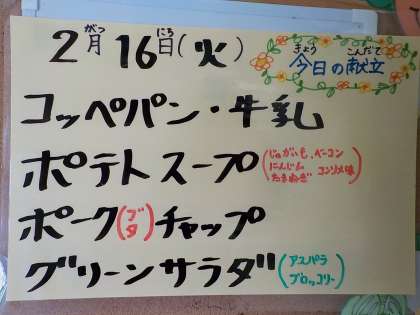 2月がつ 16日にち(火)
きょう こんだて
今日の献立
コッペパン・牛乳
ポテトスープ(じゃがいも、ベーコン
にんじん コンソメ味
たまねぎ)
ポーク(ブタ)チャップ
グリーンサラダ(アスパラ
ブロッコリー)